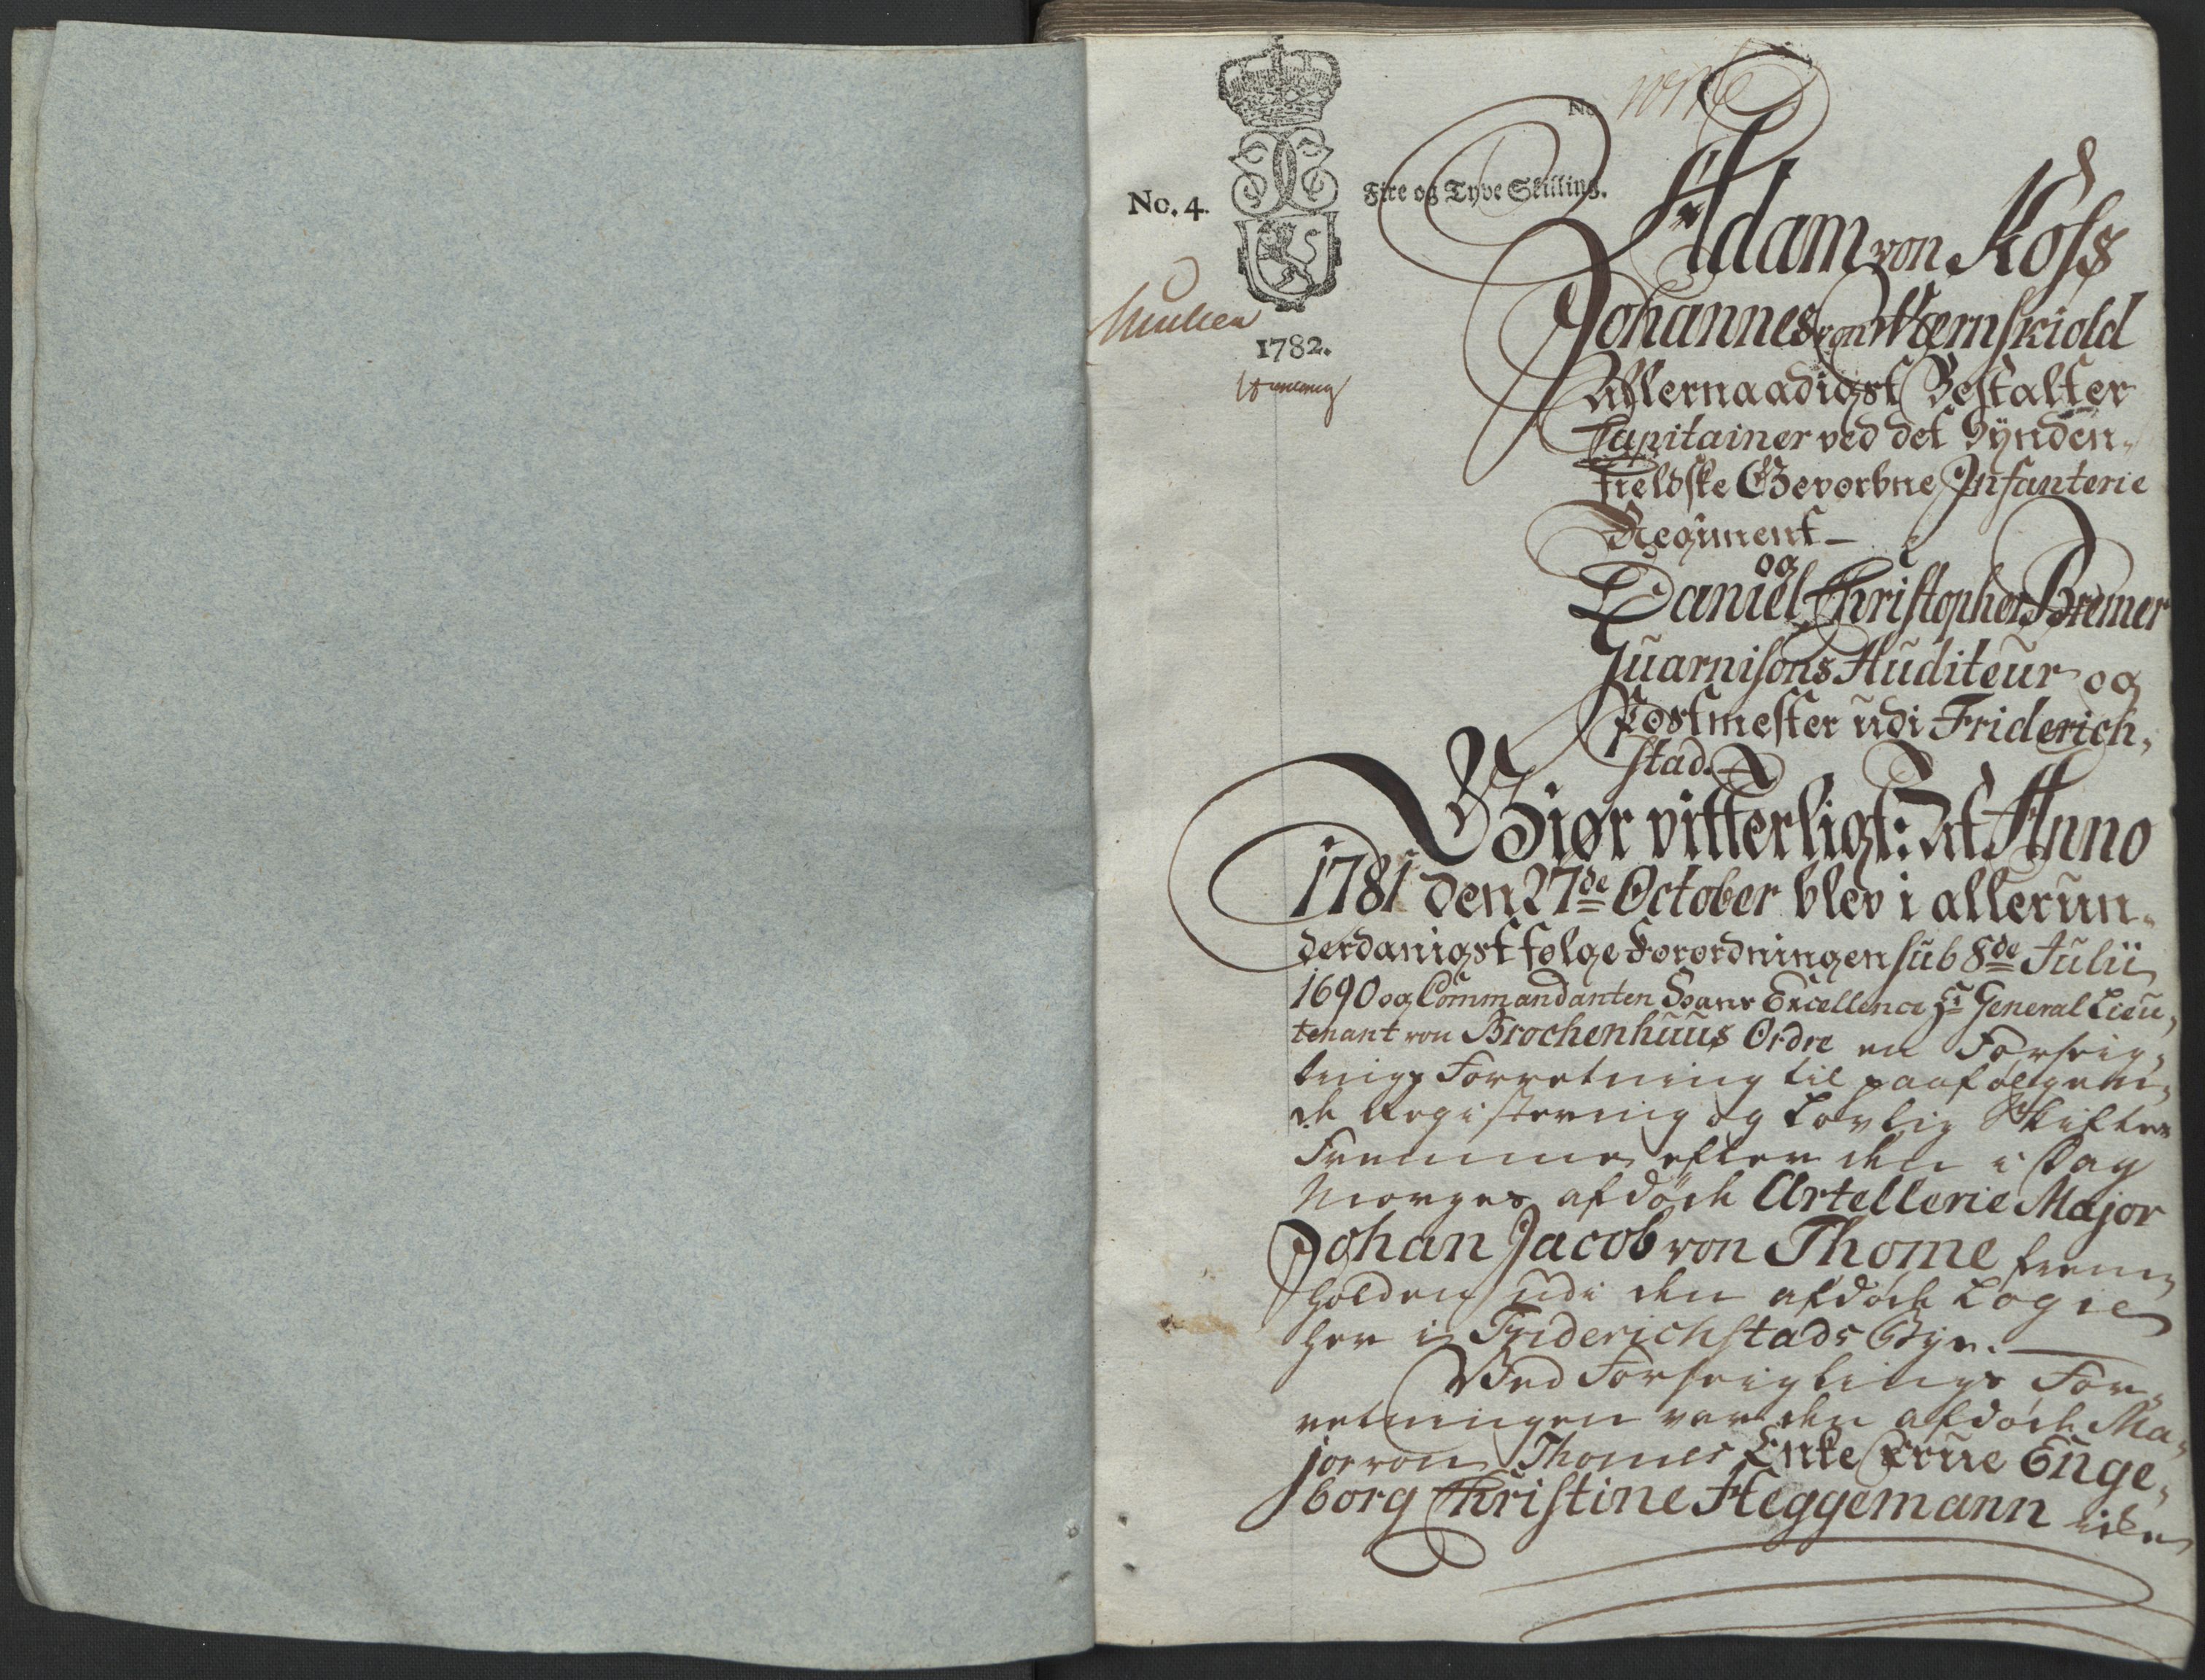 No.
No. 4.
Fire og Tyve Skilling.
1782.
Adam von Koss
Johannes von Wernskiold
Allernaadigst Bestalter
Capitainer ved det Synden-
fieldske Gevorbne Infanterie
Regiment
og
Daniel Christopher Bremer
Guarnisons Auditeur og
Postmester udi Friderich,
stad.
Giør vitterligt: At Anno
1781 den 27de October blev i allerun-
derdanigst følge Forordningen sub 8de Julii
1690 og Commandanten Hans Excellence Hr General Lieu,
tenant von Brochenhuus Ordre en Forseig,
lings Forretning til paafølgen,
de Registering og Lovlig Skiftes
Fremme efter den i Dag
Morges afdøde Artellerie Major
Johan Jacob von Thome frem,
holden udi den afdøde Logie
her i Friderichstads Bye.
Ved Forseiglings For,
retningen var den afdøde Ma,
jor von Thomes Enke Frue Enge,
borg Christine Heggemann